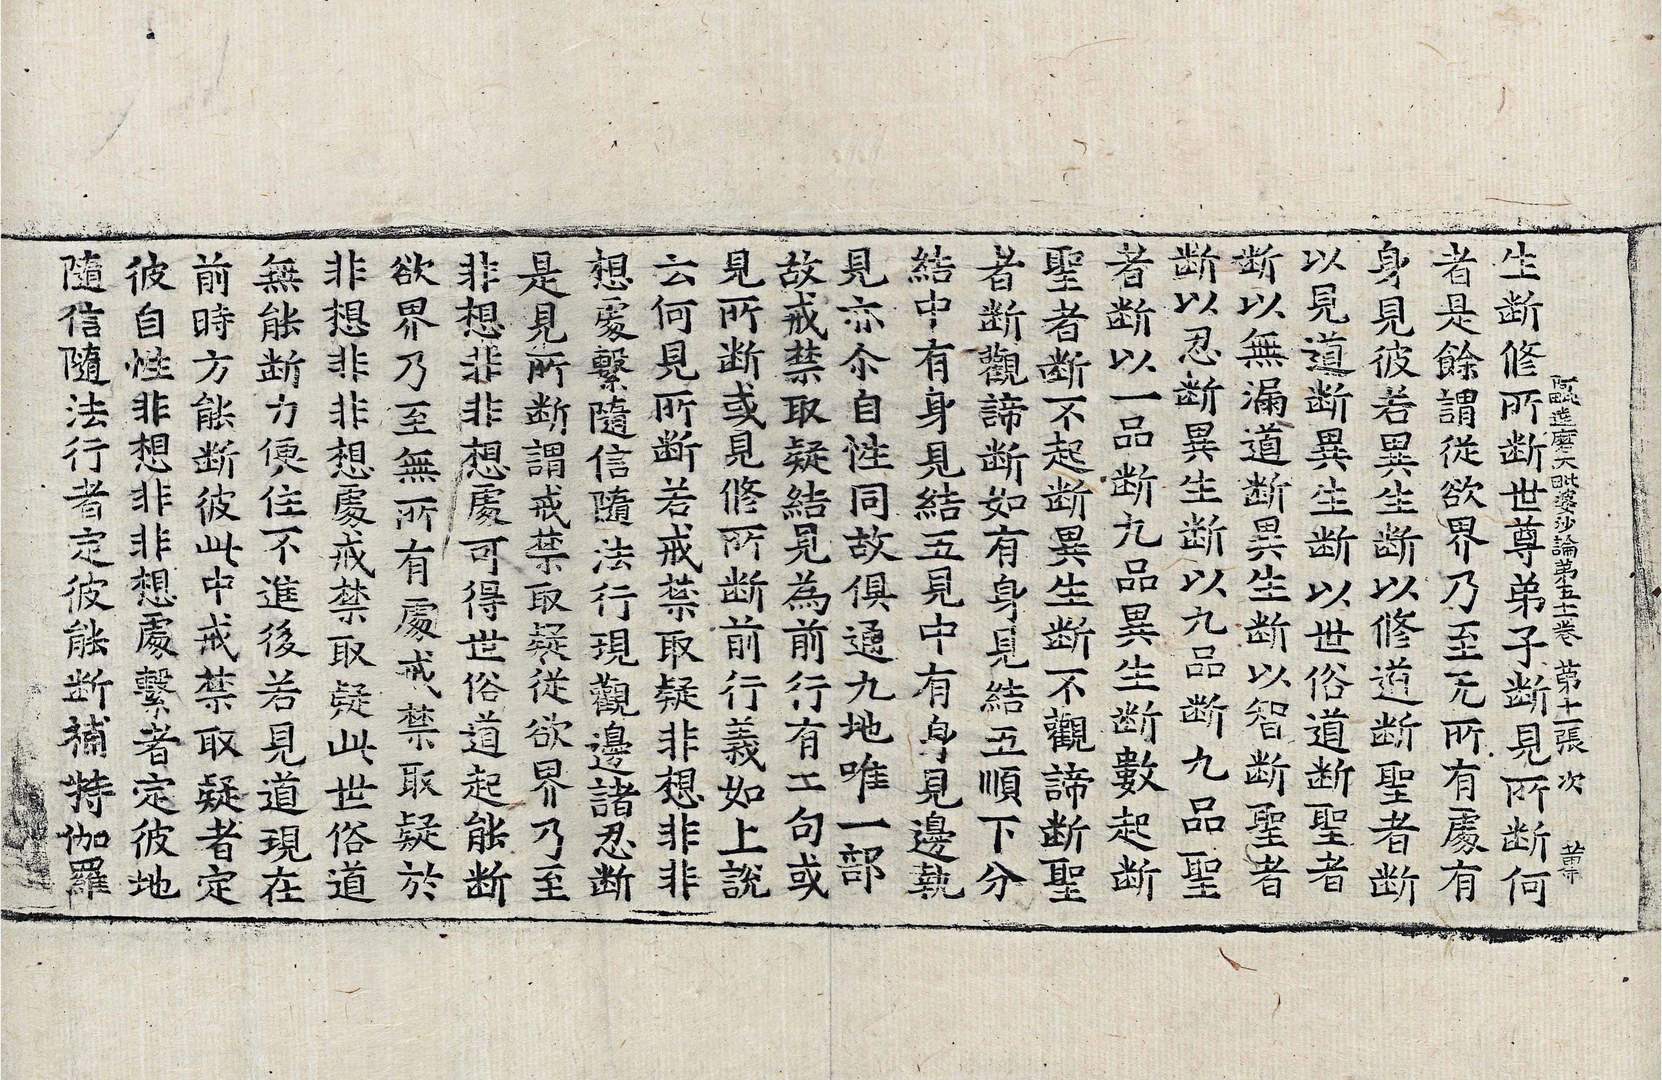 阿毗達磨大毗婆沙論第五十一卷 第十一張 次
生断修所断世尊弟子断見所断何
者是餘謂從欲界乃至无所有處有
身見彼若異生断以修道断聖者断
以見道断異生断以世俗道断聖者
断以無漏道断異生断以智断聖者
断以忍断異生断以九品断九品聖
者断以一品断九品異生断數起断
聖者断不起断異生断不觀諦断聖
者断觀諦断如有身見結五順下分
結中有身見結五見中有身見邊執
見亦尒自性同故俱通九地唯一部
故戒禁取疑結見為前行有二句或
見所断或見修所断前行義如上說
云何見所断若戒禁取疑非想非非
想處繫隨信隨法行現觀邊諸忍断
是見所断謂戒禁取疑從欲界乃至
非想非非想處可得世俗道起能断
欲界乃至無所有處戒禁取疑於
非想非非想處戒禁取疑此世俗道
無能断力便住不進後若見道現在
前時方能断彼此中戒禁取疑者定
彼自性非想非非想處繫者定彼地
隨信隨法行者定彼能断補特伽羅